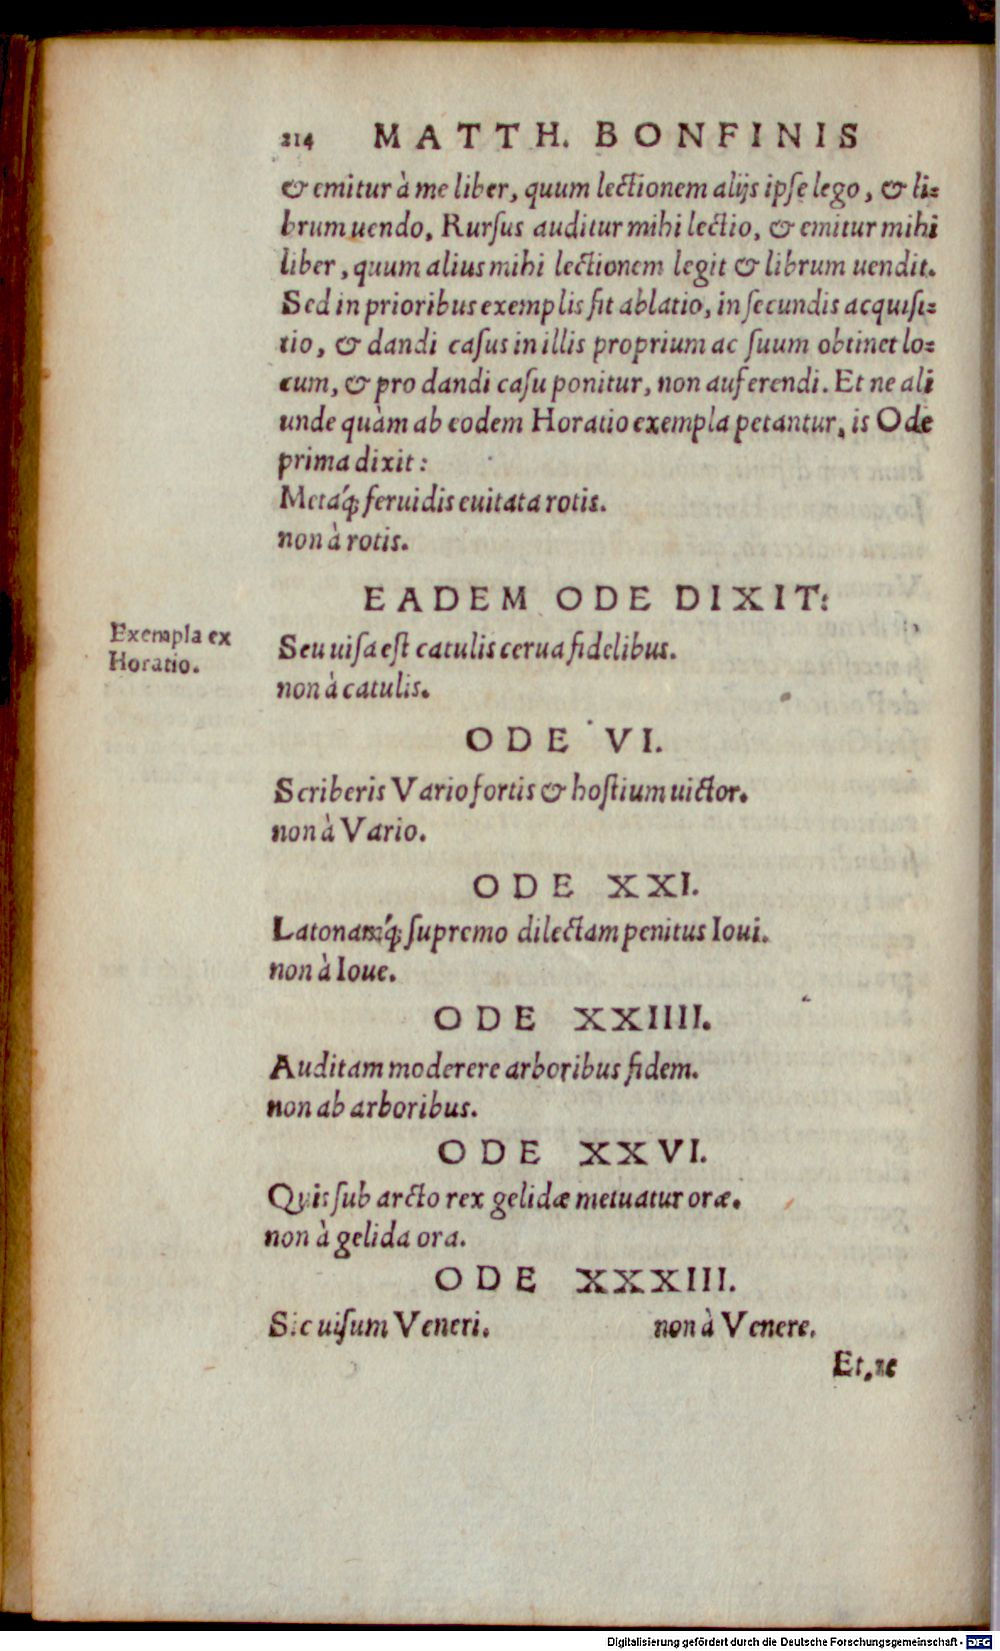 214 MATTH. BONFINIS
& emitur à me liber, quum lectionem alijs ipſe lego, & li=
brum uendo, Rurſus auditur mihi lectio, & emitur mihi
liber, quum alius mihi lectionem legit & librum uendit.
Sed in prioribus exemplis fit ablatio, in ſecundis acquiſi=
tio, & dandi caſus in illis proprium ac ſuum obtinet lo=
cum, & pro dandi caſu ponitur, non auferendi. Et ne ali
unde quàm ab eodem Horatio exempla petantur, is Ode
prima dixit:
Metaq́; feruidis euitata rotis.
non à rotis.
EADEM ODE DIXIT:
Exempla ex
Horatio.
Seu uiſa eſt catulis cerua fidelibus.
non à catulis.
ODE VI.
Scriberis Vario fortis & hoſtium uictor.
non à Vario.
ODE XXI.
Latonamq́; ſupremo dilectam penitus Ioui.
non à Ioue.
ODE XXIIII.
Auditam moderere arboribus fidem.
non ab arboribus.
ODE XXVI.
Quis ſub arcto rex gelidæ metuatur oræ.
non à gelida ora.
ODE XXXIII.
Sic uiſum Veneri. non à Venere.
Et, ne
Digitalisierung gefördert durch die Deutsche Forschungsgemeinschaft - DFG